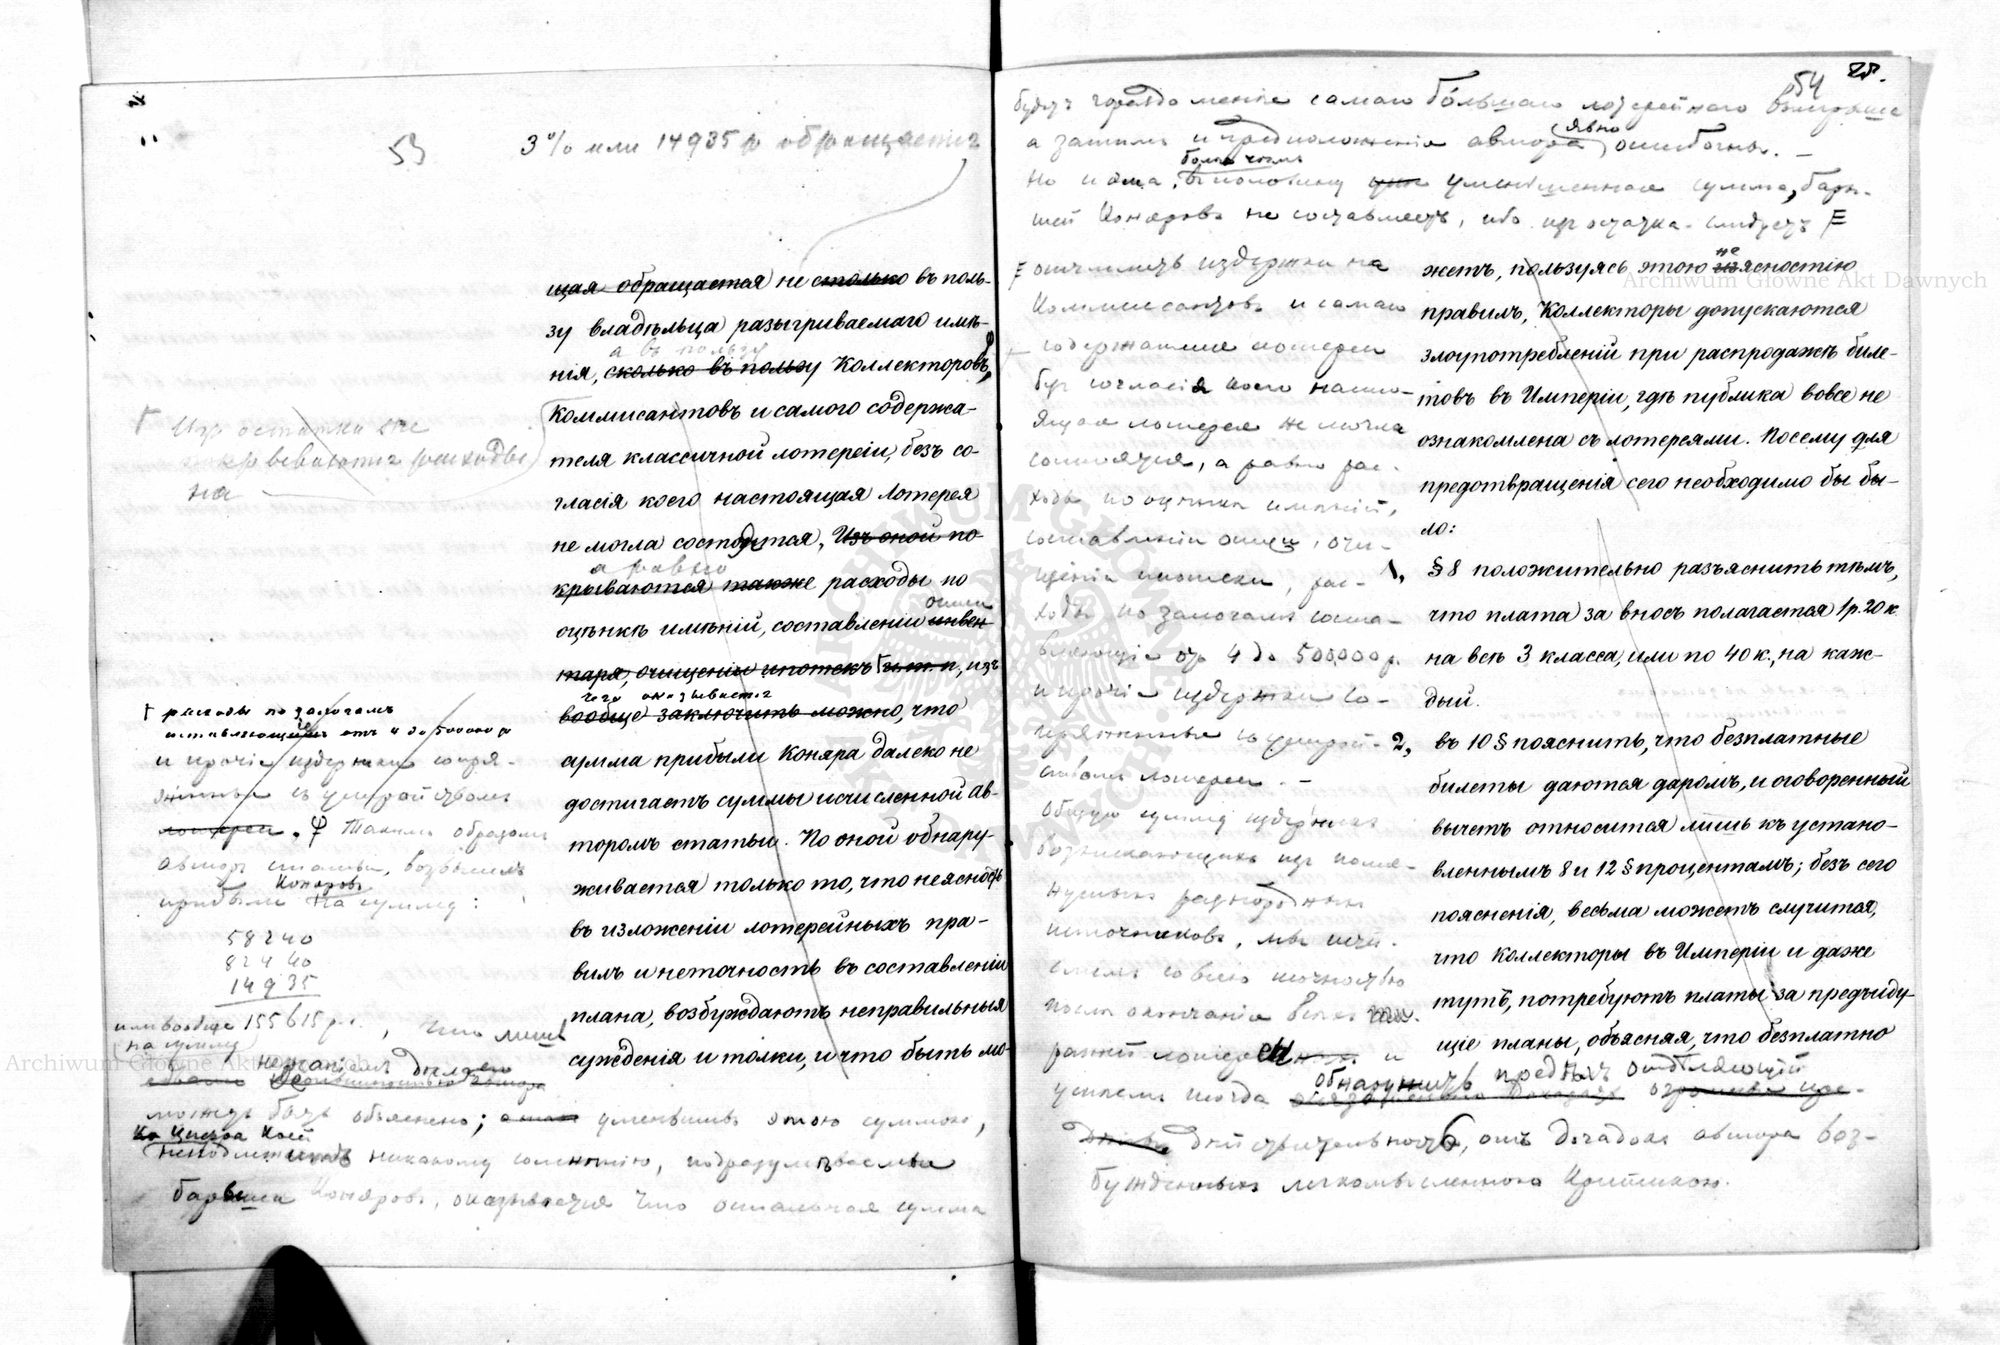 53
3% или 14935 р обращается
щая обращается не столько въ поль-
зу владѣльца разыгриваемаго имѣ-
а въ пользу
нія, сколько въ пользу Коллекторовъ,
Коммисантовъ и самого содержа-
теля классичной лотереи, безъ со-
гласія коего настоящая Лотерея
не могла состоятся, Изъ оной по-
а равно
крываются также расходы по
описи
оцѣнкѣ имѣній, составленіи инвен
таря, очищеніи ипотекъ и т. п, изъ
чего оказывается
вообще заключить можно, что
сумма прибыли Коняра далеко не
достигаетъ суммы исчисленной ав-
торомъ статьи. По оной обнару-
живается только то, что неясность
въ изложеніи лотерейныхъ пра-
вилъ и неточность въ составленіи
плана, возбуждаютъ неправильныя
сужденія и толки, и что быть мо-
Изъ остатка
расходы
на
расходы по залогамъ
отъ 4 до 500000 р
и прочіе издержки сопря-
женные съ устройствомъ
лотереи. Такимъ образомъ
авторъ статьи, возвысивъ
Коняровъ
прибыли на сумму:
58240
82440
14935
или вообще 155615 р. с., что лишь
на сумму
можетъ быть объяснено; уменьшивъ этою суммою,
никакому сомнѣнію, подразумѣваемые
барыши Коняровъ, оказывается что остальная сумма
54
28.
будетъ гораздо менѣе самаго большаго лотерейнаго выигрыша
явно
а затѣмъ и предположенія автора ошибочны. –
болѣе чѣмъ
Но и эта, въ половину уменьшенная сумма, бары-
шей Коняровъ не составляетъ, ибо изъ остатка слѣдуетъ
отчислить издержки на
Коммисантовъ и самаго
содержателя лотереи
безъ согласія коего насто-
ящая лотерея не могла
состоятся, а равно рас-
ходы по оцѣнкѣ имѣній,
составленіи описи, очи-
щеніи ипотеки, рас-
ходы по залогамъ соста-
вляющіе отъ 4 до 500,000 р.
и прочіе издержки со-
пряженные съ устрой-
ствомъ лотереи. –
Общую сумму издержекъ
возникающихъ изъ помя-
нутыхъ разнородныхъ
источниковъ, мы исчи-
слимъ со всею точностью
послѣ окончанія всѣхъ
и
успѣемъ тогда
обнаружить предъ
дѣйствительность, отъ догадокъ автора воз-
бужденныхъ легкомысленною Критикою.
не
жетъ, пользуясь этою неясностію
правилъ, Коллекторы допускаются
злоупотребленій при распродажѣ биле-
товъ въ Имперіи, гдѣ публика вовсе не
ознакомлена съ лотереями. Посему для
предотвращенія сего необходимо бы бы-
ло:
1, §8 положительно разъяснить тѣмъ,
что плата за вносъ полагается 1 р. 20 к
на всѣ 3 класса, или по 40 к., на каж-
дый.
2, въ 10 § пояснить, что безплатные
билеты даются даромъ, и оговоренный
вычетъ относится лишь къ устано-
вленнымъ 8 и 12 § процентамъ; безъ сего
поясненія, весьма можетъ случится,
что коллекторы въ Имперіи и даже
тутъ, потребуютъ платы за предъиду-
щіе планы, объясняя, что безплатно
Archiwum Główne Akt Dawnych
Archiwum Główne Akt Dawnych